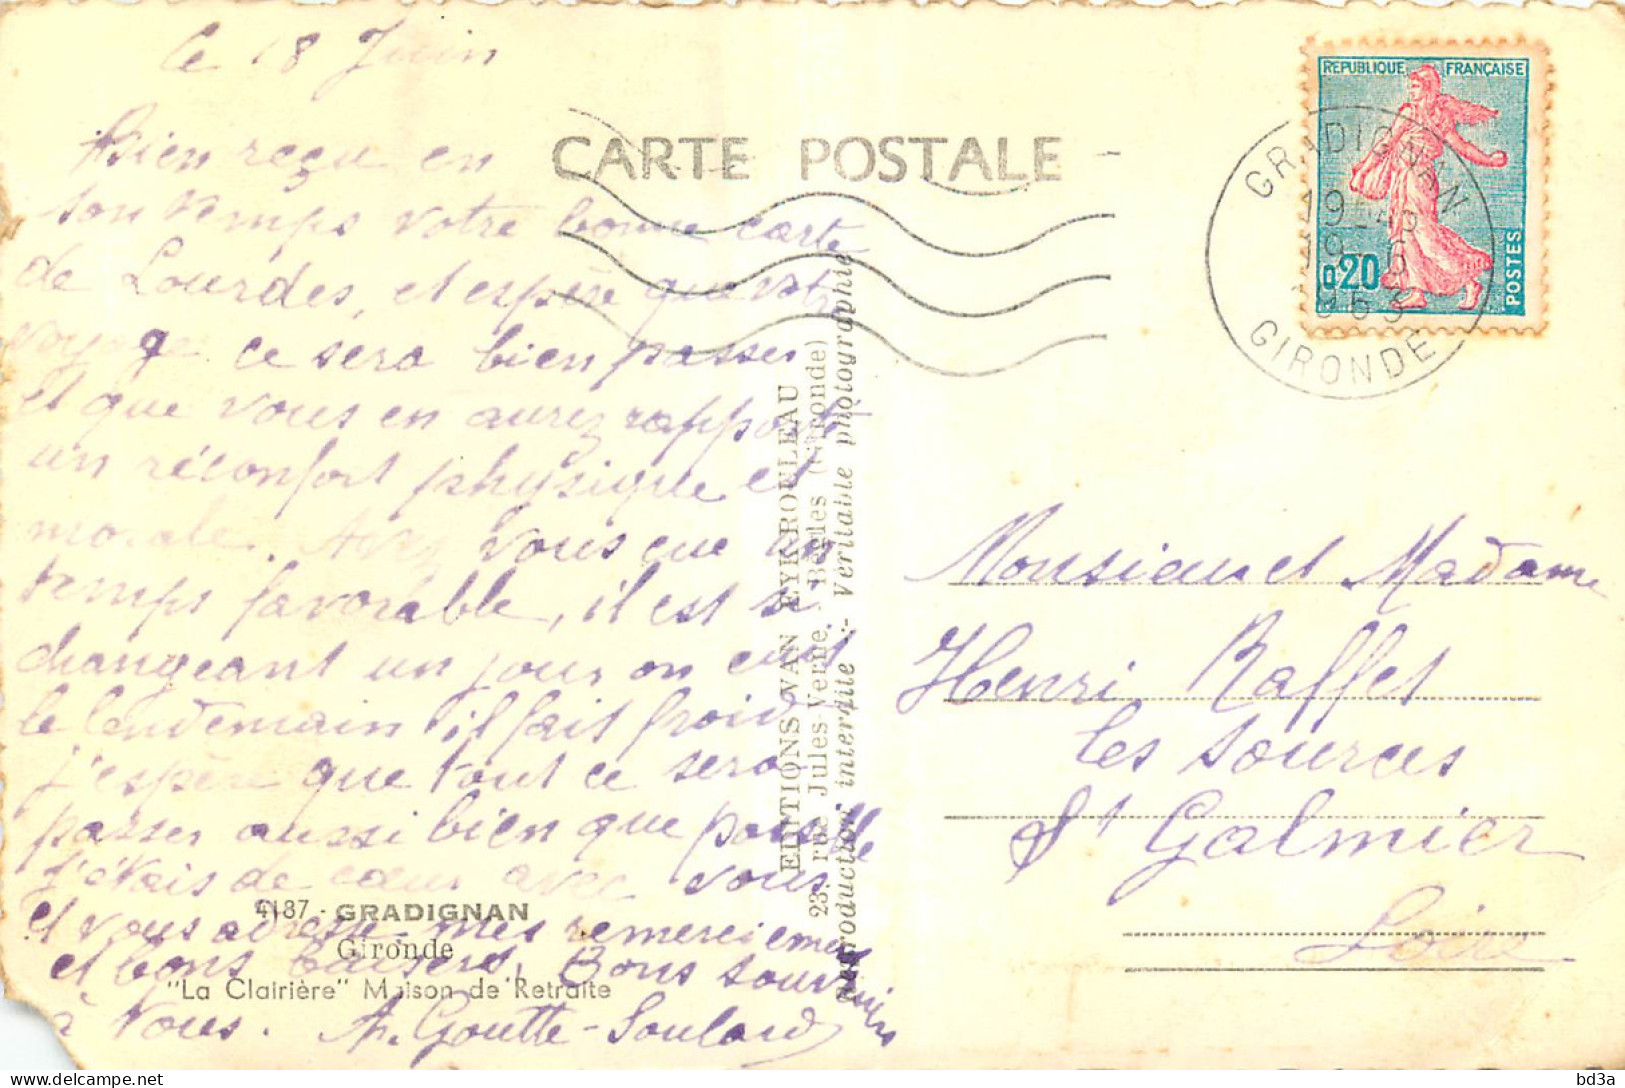 le 18 Juin
Bien reçu en
son temps votre bonne carte
de Lourdes, et espère que votre
voyage ce sera bien passer
et que vous en aurez rapporté
un réconfort physique et
morale. Avez vous eue un
temps favorable, il est si
changeant un jour on cuit
le lendemain il fait froid
j'espère que tout ce sera
passer aussi bien que possible
j'étais de cœur avec vous
et vous adresse mes remerciements
et bons baisers. Bons souvenirs
à vous. A. Goutte-Soulard
4187 - GRADIGNAN
Gironde
"La Clairière" Maison de Retraite
CARTE POSTALE
EDITIONS VAN EYKROULEAU
23, rue Jules Verne, Bègles (Gironde)
Reproduction interdite :- Véritable photographie
REPUBLIQUE FRANÇAISE
0,20
POSTES
GRADIGNAN
19 - 6
1963
GIRONDE
Monsieur et Madame
Henri Raffet
les sources
St Galmier
Loire
bd3a